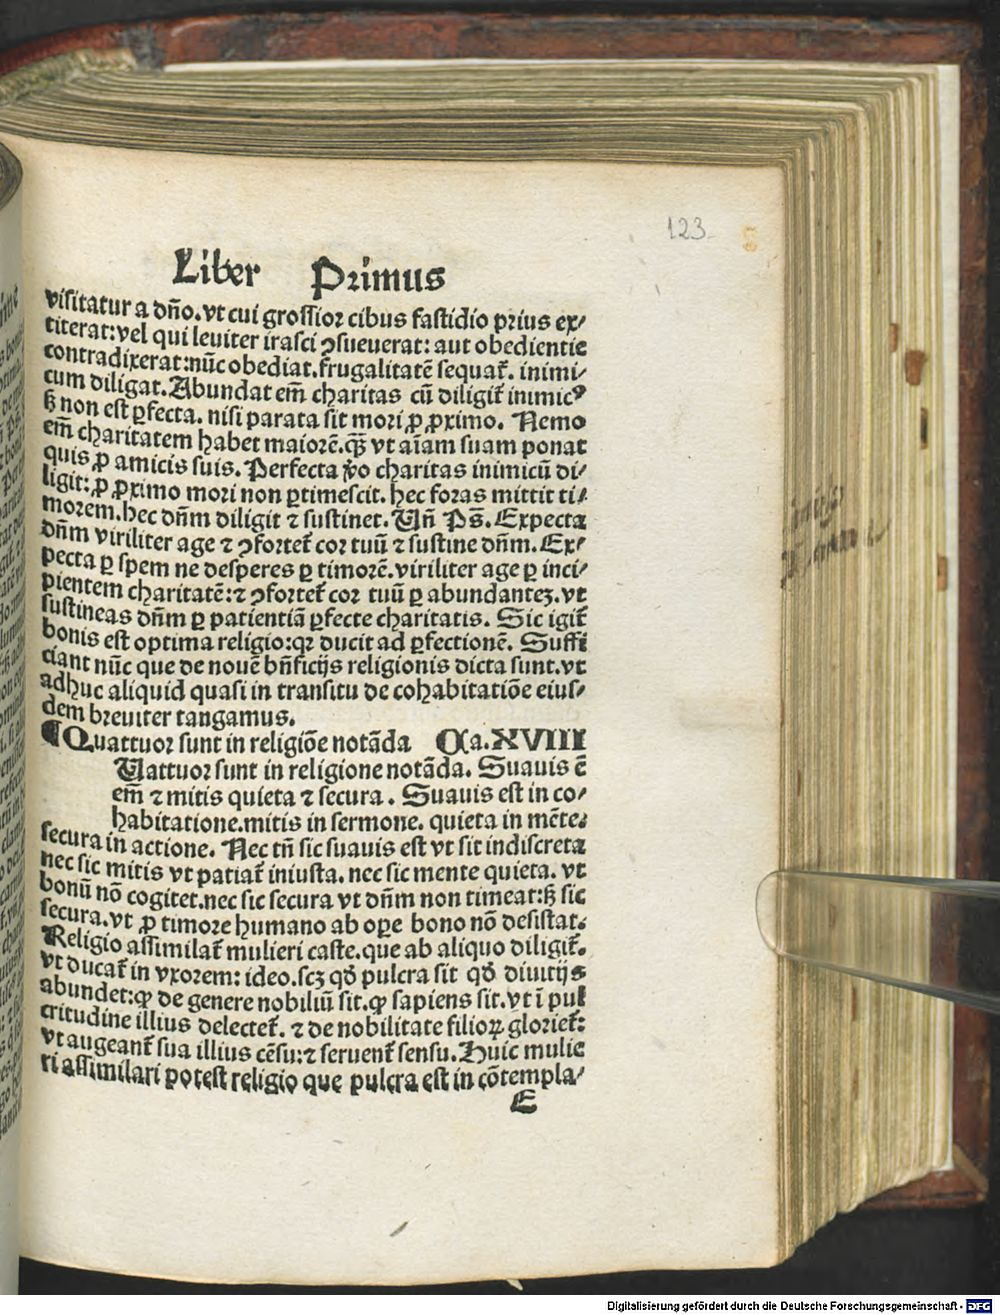 123
Liber Primus
visitatur a dño. vt cui grossior cibus fastidio prius ex⸗
titerat: vel qui leuiter irasci ꝯsueuerat: aut obedientie
contradixerat: nūc obediat. frugalitatē sequat᷑. inimi⸗
cum diligat. Abundat em̄ charitas cū diligit᷑ inimicꝰ
ꝫ non est ꝑfecta. nisi parata sit mori ꝓ ꝓximo. Nemo
em̄ charitatem habet maiorē. qꝫ vt aīam suam ponat
quis ꝓ amicis suis. Perfecta ꝟo charitas inimicū di⸗
ligit: ꝓ ꝓximo mori non ꝑtimescit. hec foras mittit ti⸗
morem. hec dn̄m diligit ⁊ sustinet. Un̄ Ps̄. Expecta
dn̄m viriliter age ⁊ ꝯfortet᷑ cor tuū ⁊ sustine dn̄m. Ex⸗
pecta ꝑ spem ne desperes ꝑ timorē. viriliter age ꝑ inci⸗
pientem charitatē: ⁊ ꝯfortet᷑ cor tuū ꝑ abundanteꝫ. vt
sustineas dn̄m ꝑ patientiā ꝑfecte charitatis. Sic igit᷑
bonis est optima religio: qꝛ ducit ad ꝑfectionē. Suffi
ciant nūc que de nouē bn̄ficijs religionis dicta sunt. vt
adhuc aliquid quasi in transitu de cohabitatiōe eius⸗
dem breuiter tangamus.
¶Quattuor sunt in religiōe notāda Ca. XVIII
Uattuor sunt in religione notāda. Suauis ē
em̄ ⁊ mitis quieta ⁊ secura. Suauis est in co⸗
habitatione. mitis in sermone. quieta in mēte.
secura in actione. Nec tn̄ sic suauis est vt sit indiscreta
nec sic mitis vt patiat᷑ iniusta. nec sic mente quieta. vt
bonū nō cogitet. nec sic secura vt dn̄m non timeat: ꝫ sic
secura. vt ꝓ timore humano ab oꝑe bono nō desistat.
Religio assimilat᷑ mulieri caste. que ab aliquo diligit᷑.
vt ducat᷑ in vxorem: ideo. scꝫ qđ pulcra sit qđ diuitijs
abundet: ꝙ de genere nobiliū sit. ꝙ sapiens sit. vt ī pul
critudine illius delectet᷑. ⁊ de nobilitate filioꝝ gloriet᷑:
vt augeant᷑ sua illius cēsu: ⁊ seruent᷑ sensu. Huic mulie
ri assimilari potest religio que pulcra est in cōtempla⸗
E
Digitalisierung gefördert durch die Deutsche Forschungsgemeinschaft - DFG